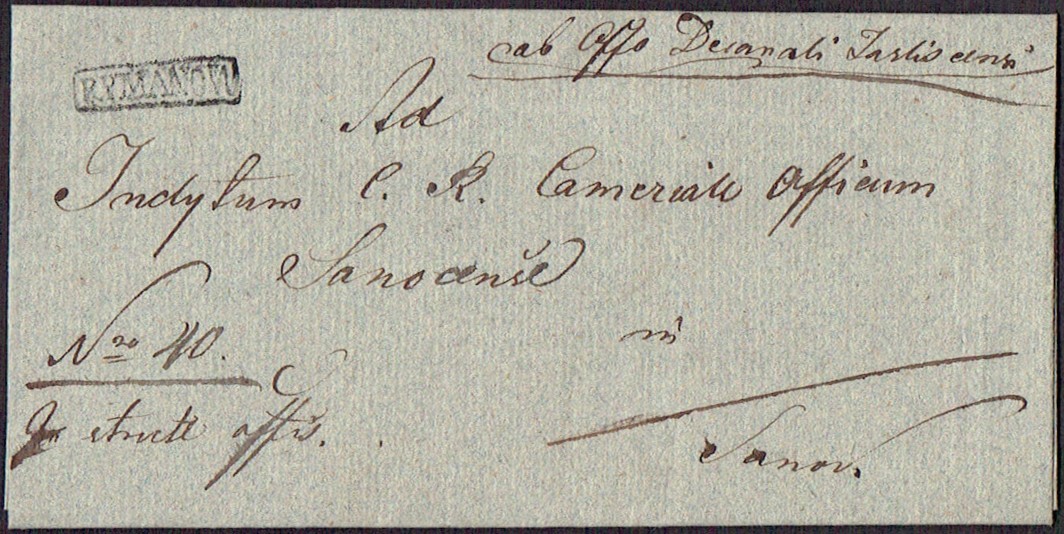 ab Offo Decanali Jaslis censi
RYMANOW
Ad
Indytum C. R. Camerale Officium
Sanocense
Nro 40.
in
stricte offis.
Sanok.